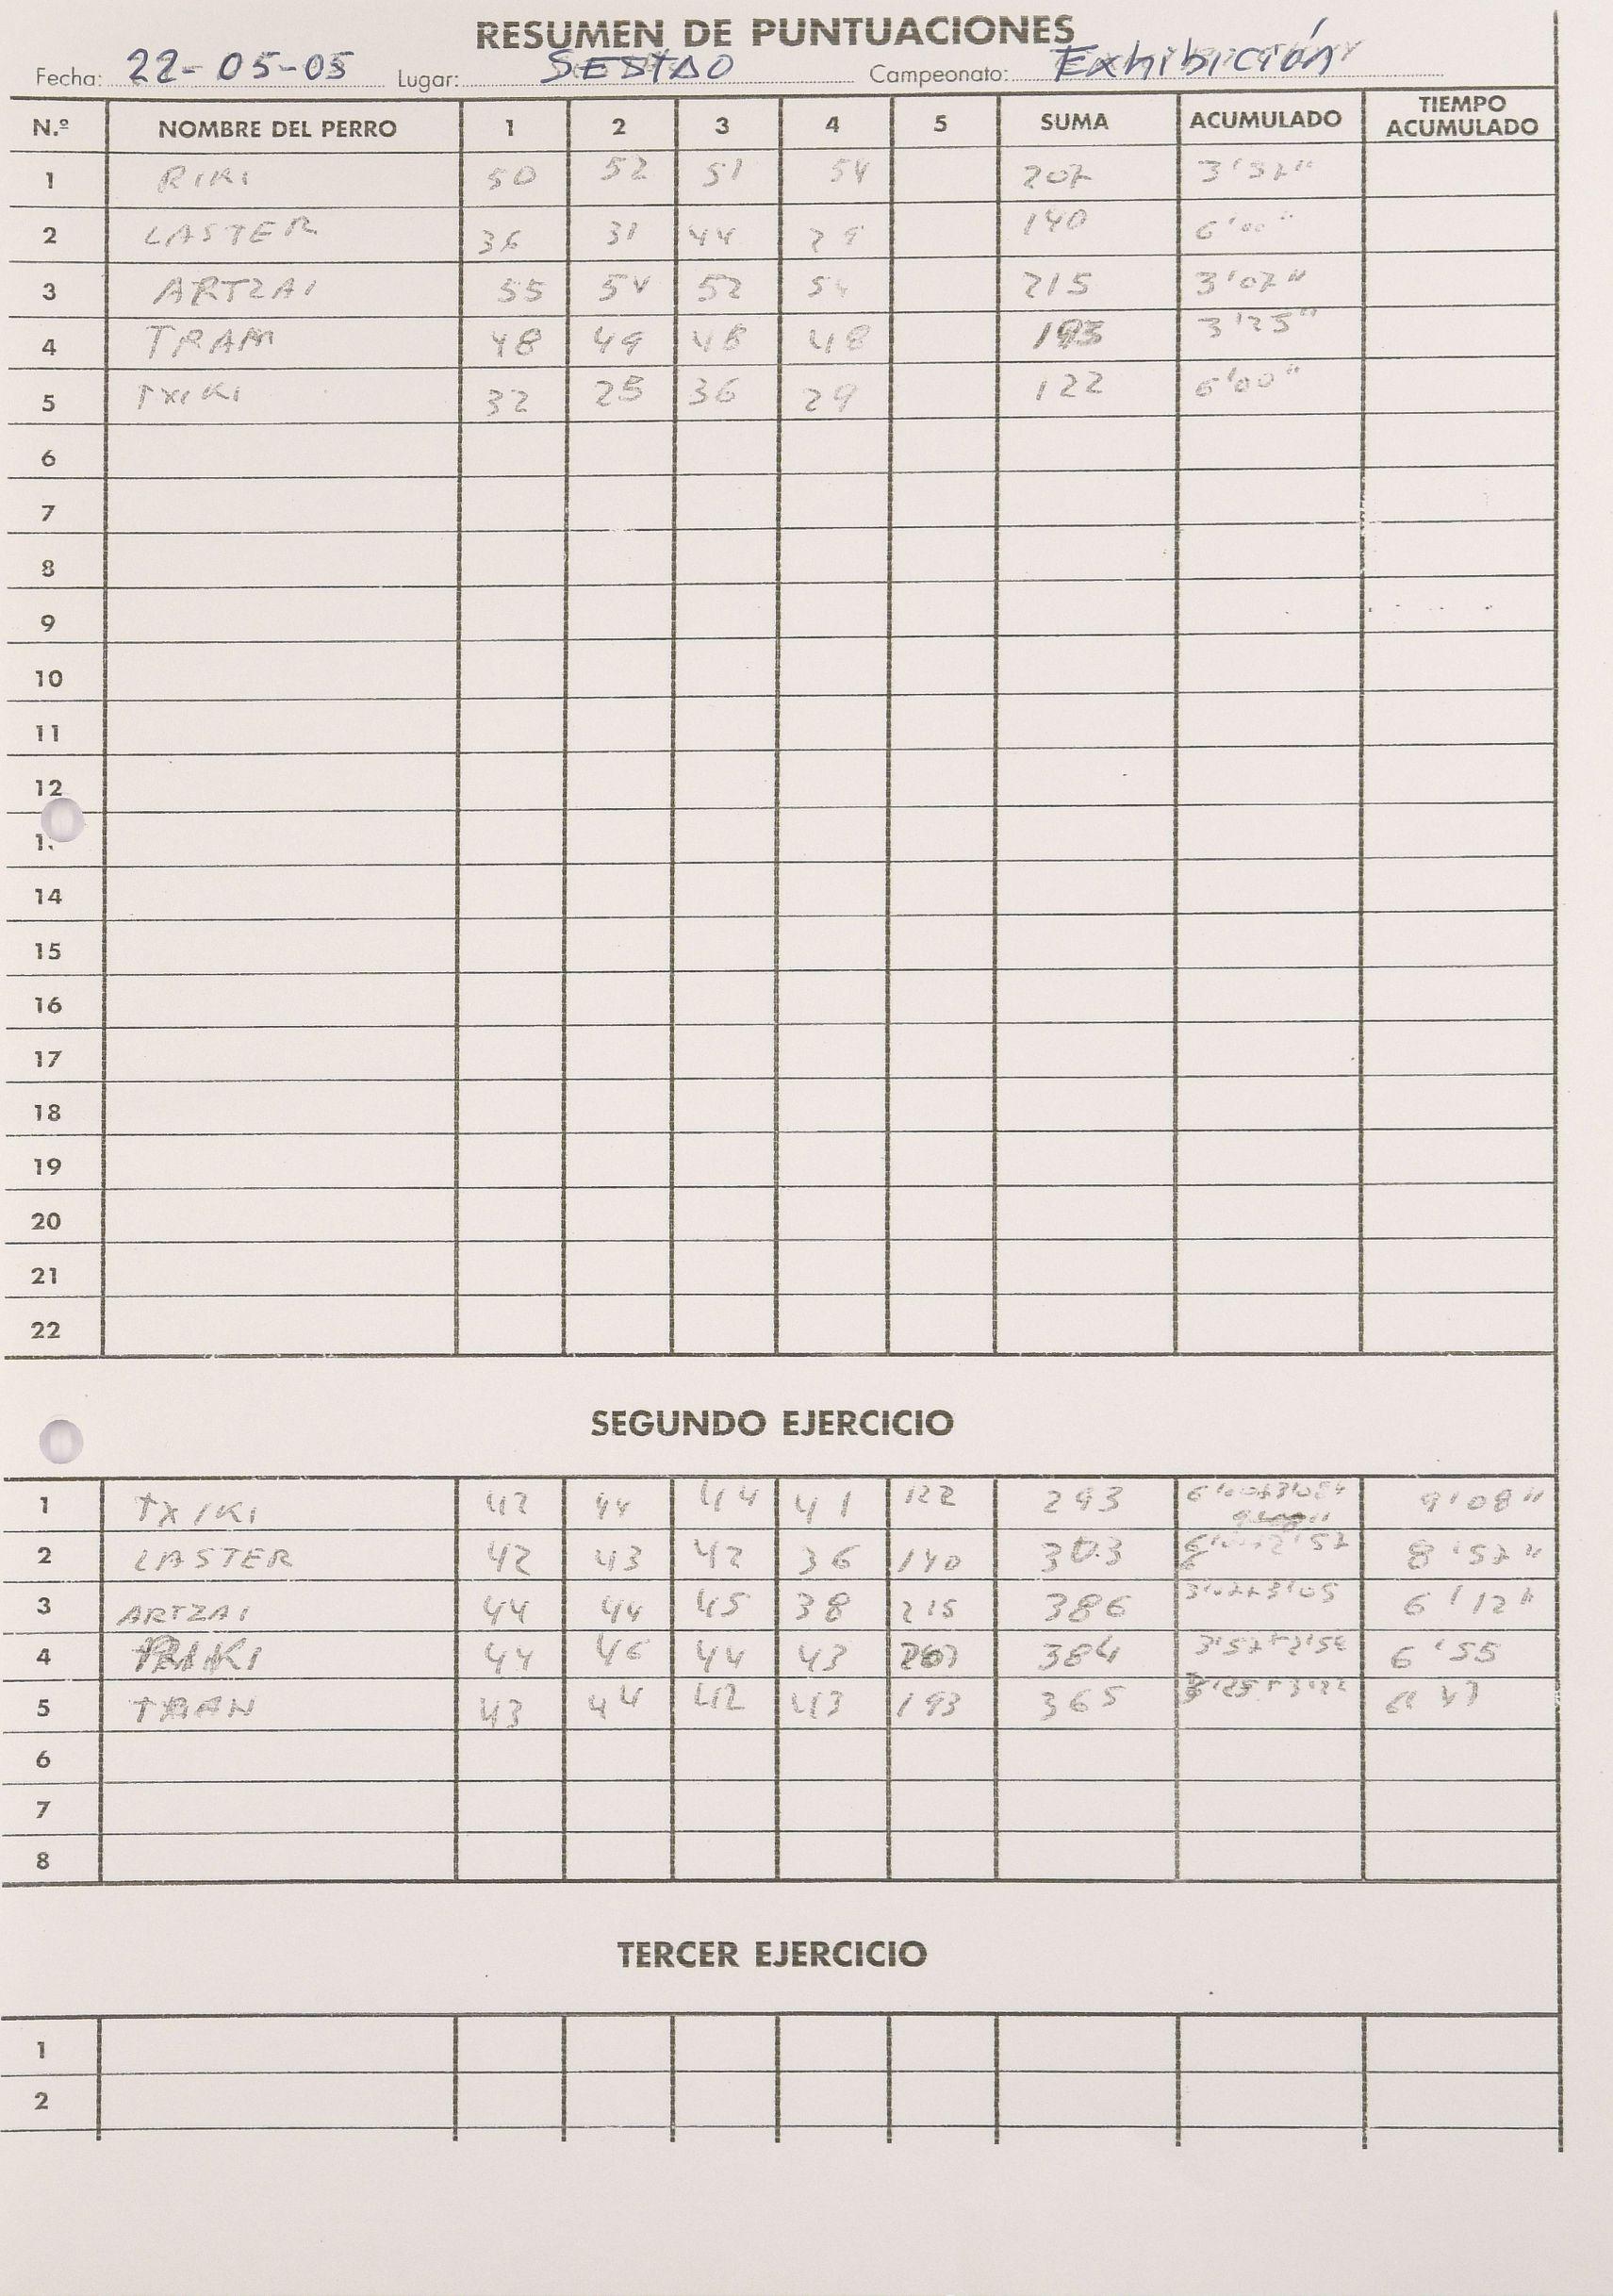 RESUMEN DE PUNTUACIONES
Fecha: 22-05-05 Lugar: SESTAO Campeonato: Exhibición
N.º NOMBRE DEL PERRO 1 2 3 4 5 SUMA ACUMULADO TIEMPO ACUMULADO
1 RIKI 50 52 51 54 207 3'57"
2 LASTER 36 31 44 29 140 6'00"
3 ARTZAI 55 54 52 54 215 3'07"
4 TRAM 48 49 48 48 193 3'25"
5 TXIKI 32 25 36 29 122 6'00"
6
7
8
9
10
11
12
14
15
16
17
18
19
20
21
22
SEGUNDO EJERCICIO
1 TXIKI 42 44 44 41 122 293 9'08"
2 LASTER 42 43 42 36 140 303 8'57"
3 ARTZAI 44 44 45 38 215 386 3'07+3'05 6'12"
4 RIKI 44 46 44 43 207 384 6'55
5 TRAN 43 44 42 43 193 365 3'25+3'22
6
7
8
TERCER EJERCICIO
1
2